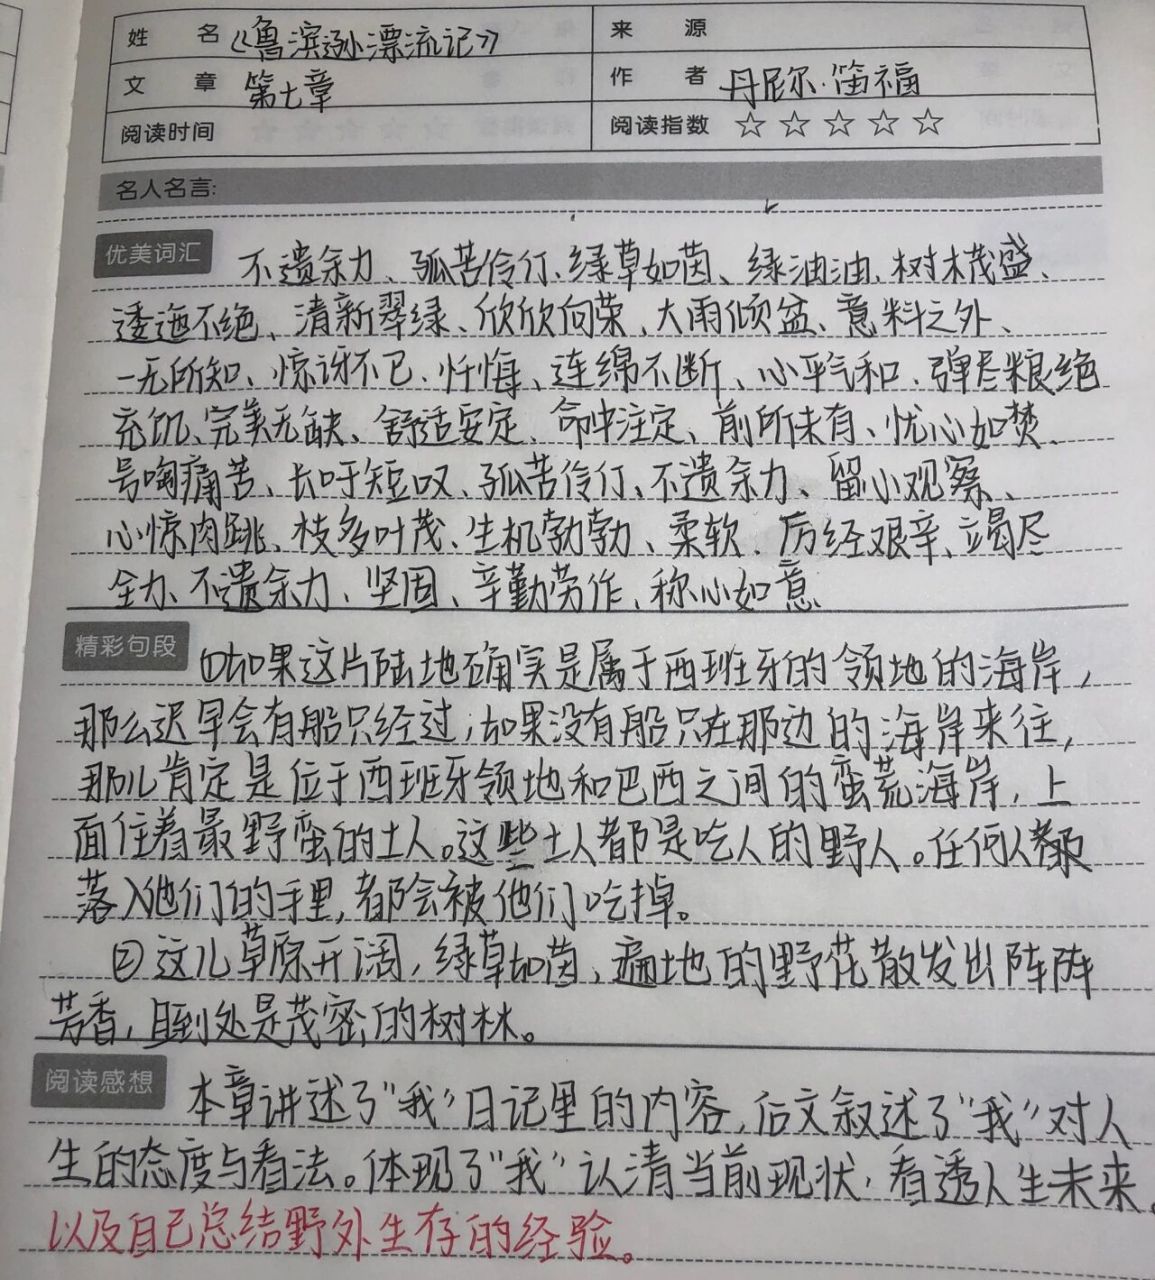 姓 名 《鲁滨逊漂流记》 来 源
文 章 第七章 作 者 丹尼尔·笛福
阅读时间 阅读指数 ☆☆☆☆☆
名人名言:
优美词汇 不遗余力、孤苦伶仃、绿草如茵、绿油油、树木茂盛、
逶迤不绝、清新翠绿、欣欣向荣、大雨倾盆、意料之外、
一无所知、惊讶不已、忏悔、连绵不断、心平气和、弹尽粮绝
充饥、完美无缺、舒适安定、命中注定、前所未有、忧心如焚、
号啕痛苦、长吁短叹、孤苦伶仃、不遗余力、留小观察、
心惊肉跳、枝多叶茂、生机勃勃、柔软、历经艰辛、竭尽
全力、不遗余力、坚固、辛勤劳作、称心如意
精彩句段 ①如果这片陆地确实是属于西班牙的领地的海岸,
那么迟早会有船只经过;如果没有船只在那边的海岸来往,
那儿肯定是位于西班牙领地和巴西之间的蛮荒海岸,上
面住着最野蛮的土人。这些土人都是吃人的野人。任何人都
落入他们的手里,都会被他们吃掉。
②这儿草原开阔,绿草如茵,遍地的野花散发出阵阵
芳香,且到处是茂密的树林。
阅读感想 本章讲述了"我"日记里的内容,后文叙述了"我"对人
生的态度与看法。体现了"我"认清当前现状,看透人生未来。
以及自己总结野外生存的经验。